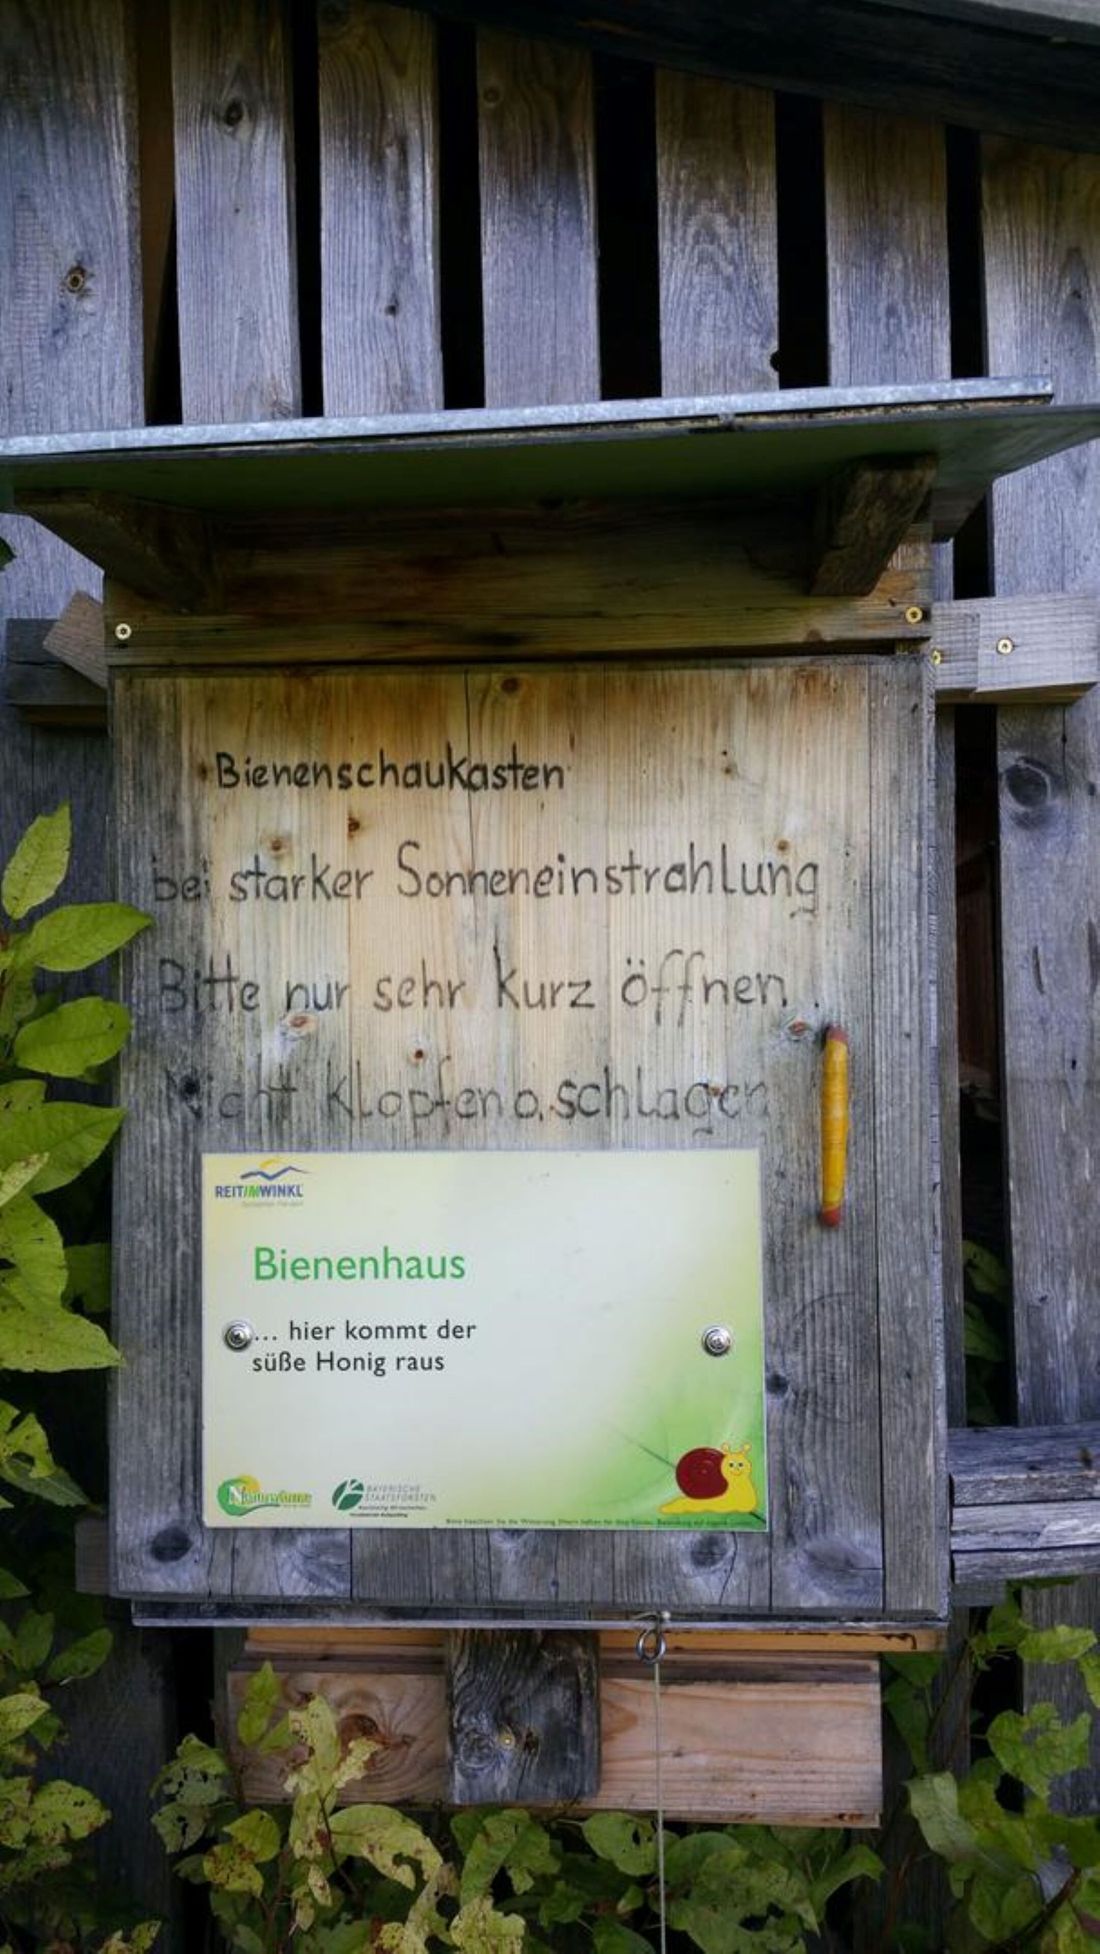 Bienenschaukasten
bei starker Sonneneinstrahlung
Bitte nur sehr kurz öffnen.
Nicht Klopfen o. schlagen
REIT IM WINKL
Bienenhaus
... hier kommt der
süße Honig raus
BAYERISCHE
STAATSFORSTEN